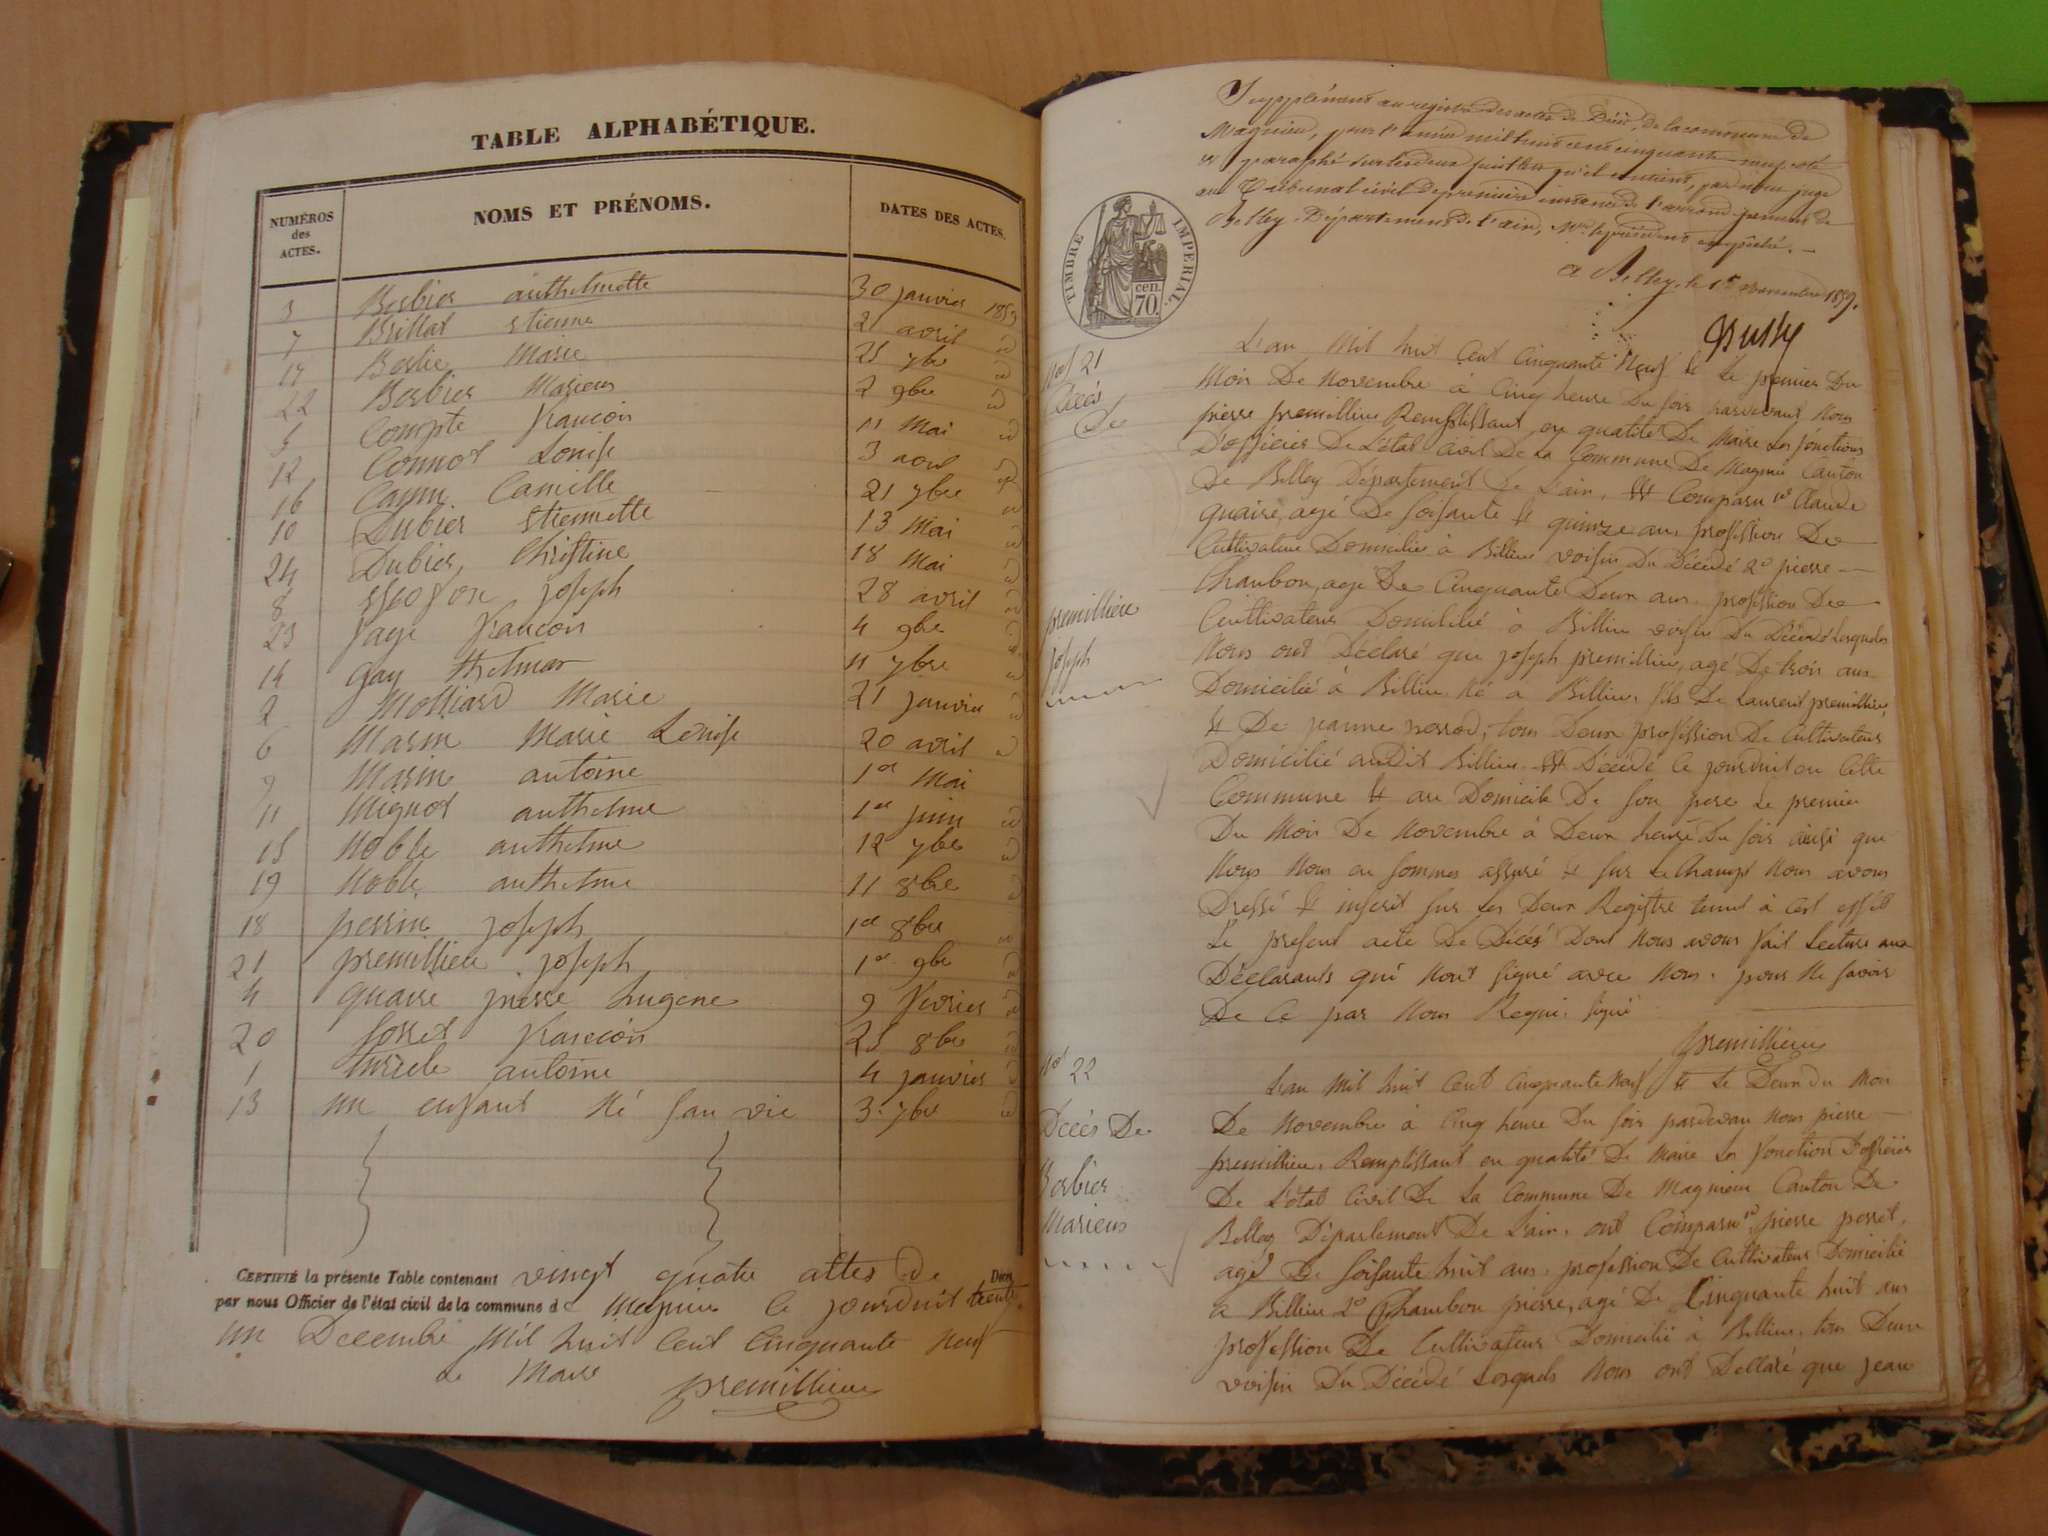 TABLE ALPHABÉTIQUE.
NUMÉROS des ACTES.
NOMS ET PRÉNOMS.
DATES DES ACTES.
3 Berbier anthelmette 30 janvier 1859
7 Brillat etienne 21 avril
17 Berlie Marie 25 7bre
22 Berbier Marieus 2 9bre
5 Compte francois 11 Mai
12 Connot Louise 3 aout
16 Camille 21 7bre
10 Dubier etiennette 13 Mai
24 Dubier, Christine 18 Mai
8 joseph 28 avril
23 fage francois 4 9bre
14 gay thelmar 11 7bre
2 Molliard Marie 21 janvier
6 Marin Marie Louise 20 avril
9 Marin antoine 1er Mai
11 Mignot anthelme 1er juin
15 Noble anthelme 12 7bre
19 Noble anthelme 11 8bre
18 perrin joseph 1er 8bre
21 premillieu joseph 1er 9bre
4 quaire pierre Eugene 9 fevrier
20 francois 25 8bre
1 antoine 4 janvier
13 un enfant Né san vie 3. 7bre
CERTIFIÉ la présente Table contenant vingt quatre attes de Décès
par nous Officier de l'état civil de la commune de Magnieu le jourduit trente
un Decembre Mil huit Cent Cinquante Neuf
Le Maire premillieu
Supplément au registre des actes de Décès, de la commune de
Magnieu, pour l'année mil huit cent cinquante-neuf, coté
et paraphé sur les deux feuillets qu'il contient, par nous juge
au Tribunal civil de première instance de l'arrondissement de
Belley, Département de l'ain, Mr le président empêché. -
a Belley, le 1er novembre 1859.
TIMBRE IMPÉRIAL.
70 cen.
No 21
Décés
De
premillieu
joseph
L'an Mil huit Cent Cinquante Neuf & Le premier Du
Mois De Novembre à Cinq heure Du soir pardevant Nous
pierre premillieu Remplissant en qualité De Maire Les fonctions
D'officier De L'état Civil De La Commune De Magnieu Canton
De Belley Département De L'ain, Comparu 1er Claude
quaire, agé De soisante & quinze ans profession De
Cultivateur Domicilié à Billieu voisin Du Décédé 2o pierre
Chanbon, agé De Cinquante Deux ans profession De
Cultivateur Domicilié à Billieu voisin Du Décédé Lesquels
Nous ont Déclaré que joseph premillieu, agé De trois ans
Domicilié à Billieu Né a Billieu fils De Laurent premillieu,
& De jeanne perrod, tous Deux profession De Cultivateur
Domicilié audit Billieu Décédé Ce jourduit en Cette
Commune & au Domicile De son pere Le premier
Du Mois De Novembre à Deux heure Du soir ainsi que
Nous Nous en sommes assuré & sur Le Champt Nous avons
Dressé & inscrit sur Les Deux Registre tenut à Cet effet
Le present acte De Décés Dont Nous avons fait Lecture aux
Déclarants qui Nont signé avec Nous. pour Ne savoir
De Ce par Nous Requi. signé
premillieu
No 22
Décés De
Berbier
Marieus
Lan Mil huit Cent Cinquante Neuf & Le Deux du Mois
De Novembre à Cinq heure Du soir pardevan Nous pierre
premillieu. Remplissant en qualité De Maire Les fonction D'officier
De L'état Civil De La Commune De Magnieu Canton De
Belley Département De L'ain. ont Comparu 1er pierre perret,
agé De soisante huit ans. profession De Cultivateur Domicilié
a Billieu 2o Chambon pierre, agé De Cinquante huit ans
profession De Cultivateur Domicilié à Billieu, tous Deux
voisin Du Décédé Lesquels Nous ont Dellaré que jean